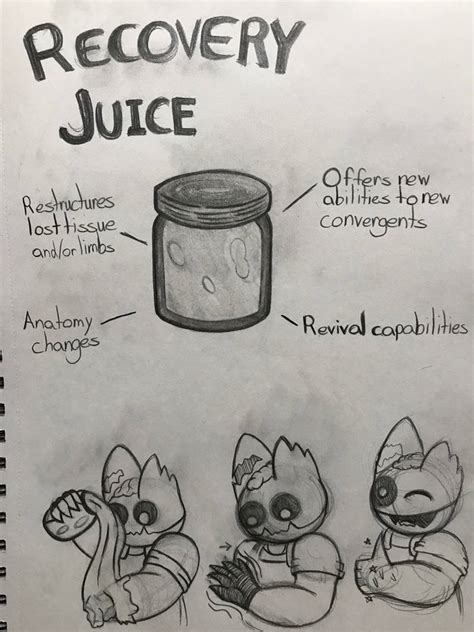 RECOVERY
JUICE
Restructures
lost tissue
and/or limbs
Offers new
abilities to new
convergents
Anatomy
changes
Revival capabilities